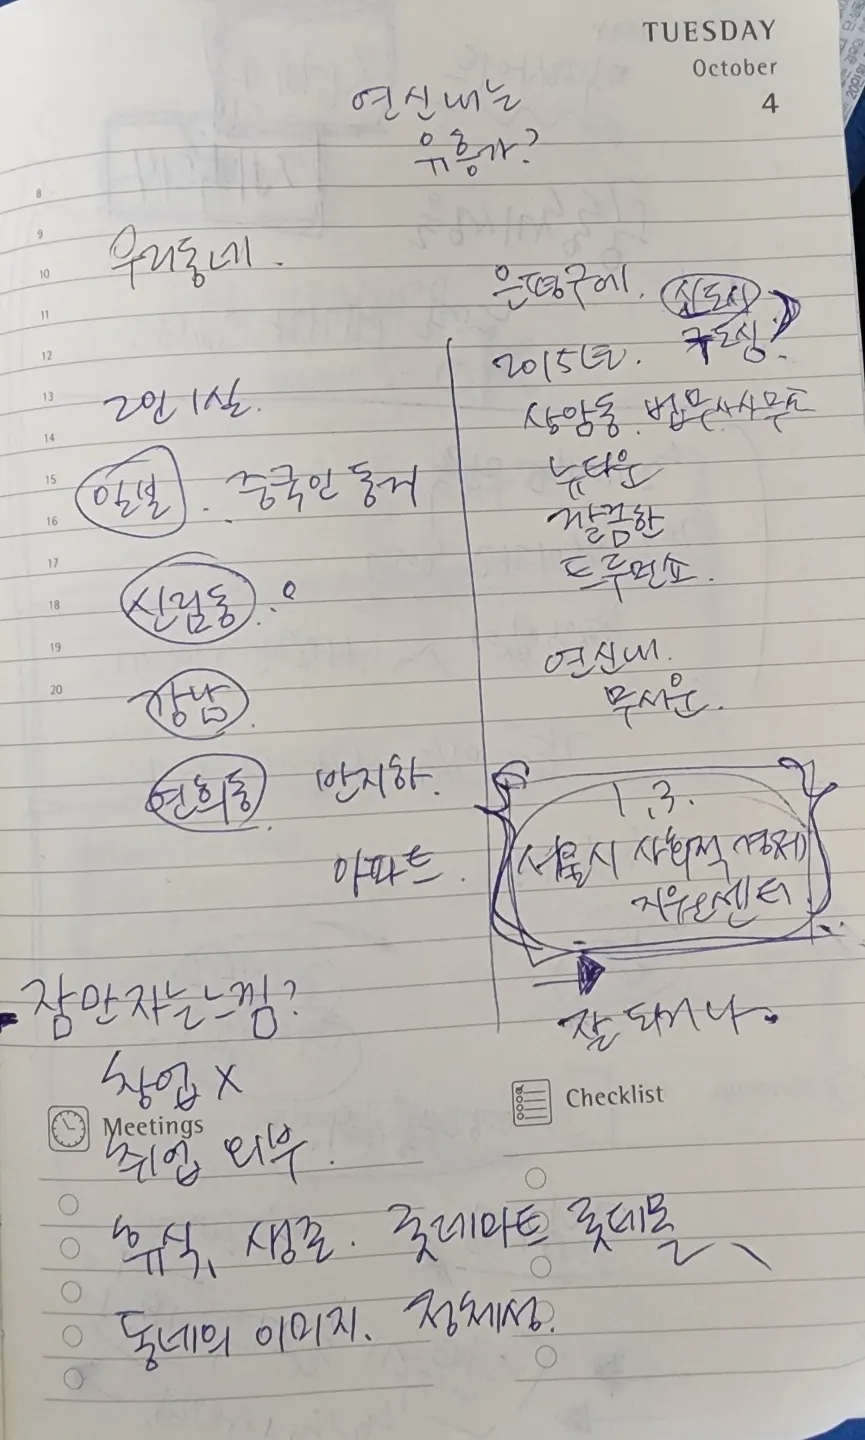 TUESDAY
October
4
연신내는
유흥가?
8
9
10
11
12
13
14
15
16
17
18
19
20
우리동네.
2인 1실.
일본. 중국인 동거
신림동.
강남.
연희동. 반지하.
아파트.
은평구에. 신도시
구도심?
2015년.
상암동. 법무사사무소
뉴타운
깔끔한
트루먼쇼.
연신내.
무서운.
1.3.
서울시 사회적 경제
지원센터
잘 되거나.
잠만 자는 느낌?
창업 X
Meetings
Checklist
취업 외부.
휴식, 생존. 롯데마트 롯데몰
동네의 이미지. 정체성.